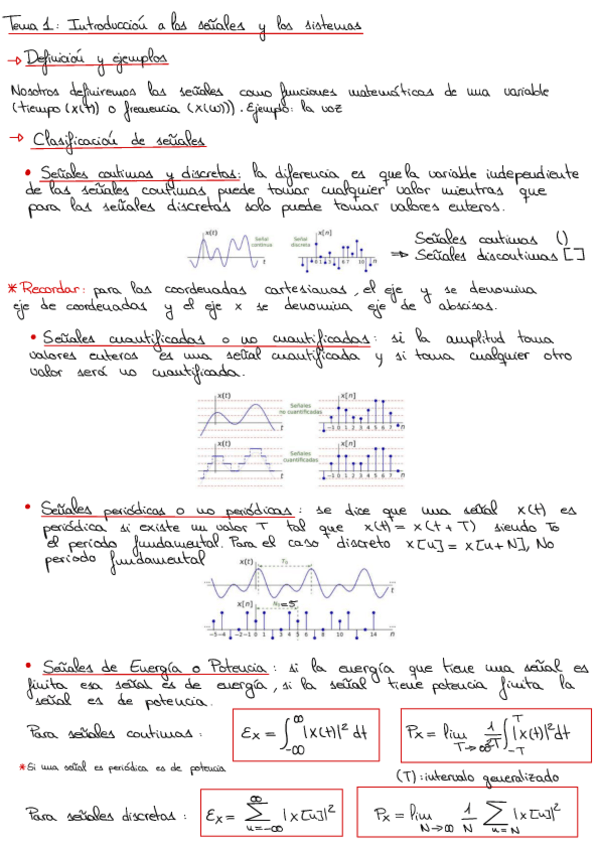 Tema 1: Introducción a las señales y los sistemas
→ Definición y ejemplos
Nosotros definiremos las señales como funciones matemáticas de una variable
(tiempo (x(t)) o frecuencia (x(ω))). Ejemplo: la voz
→ Clasificación de señales
• Señales continuas y discretas: la diferencia es que la variable independiente
de las señales continuas puede tomar cualquier valor mientras que
para las señales discretas solo puede tomar valores enteros.
x(t) Señal continua t
x[n] Señal discreta n
Señales continuas ()
⇒ Señales discontinuas []
* Recordar: para las coordenadas cartesianas, el eje y se denomina
eje de coordenadas y el eje x se denomina eje de abscisas.
• Señales cuantificadas o no cuantificadas: si la amplitud toma
valores enteros es una señal cuantificada y si toma cualquier otro
valor será no cuantificada.
x(t) t Señales no cuantificadas x[n] -1 0 1 2 3 4 5 6 7 n
x(t) t Señales cuantificadas x[n] -1 0 1 2 3 4 5 6 7 n
• Señales periódicas o no periódicas: se dice que una señal x(t) es
periódica si existe un valor T tal que x(t) = x(t+T) siendo T0
el periodo fundamental. Para el caso discreto x[n] = x[n+N], N0
periodo fundamental
x(t) T0 t
x[n] N0=5
-5-4 -2-1 0 1 4 5 6 8 10 14 n
• Señales de Energía o Potencia: si la energía que tiene una señal es
finita esa señal es de energía, si la señal tiene potencia finita la
señal es de potencia.
Para señales continuas: Ex = ∫_{-∞}^{∞} |x(t)|² dt Px = lim_{T→∞} 1/2T ∫_{-T}^{T} |x(t)|² dt
* Si una señal es periódica es de potencia
(T): intervalo generalizado
Para señales discretas: Ex = ∑_{n=-∞}^{∞} |x[n]|² Px = lim_{N→∞} 1/N ∑_{n=N} |x[n]|²